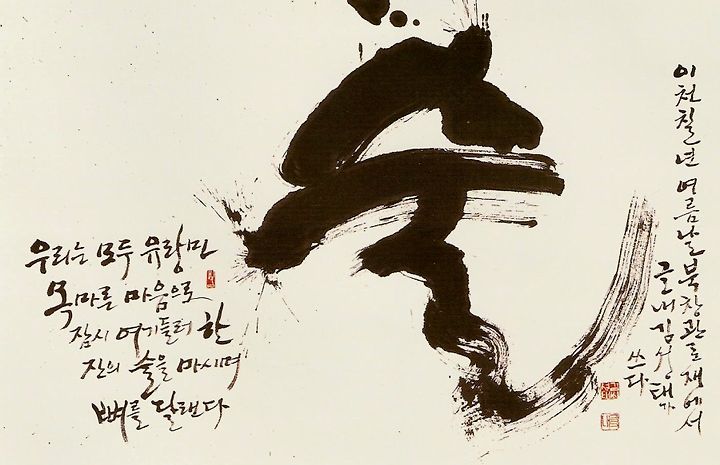 술
우리는 모두 유랑민
목마른 마음으로
잠시 여기들러 한
잔의 술을 마시며
뼈를 달랜다
이천칠년 여름날 북창관로재에서
글내 김성태가
쓰다